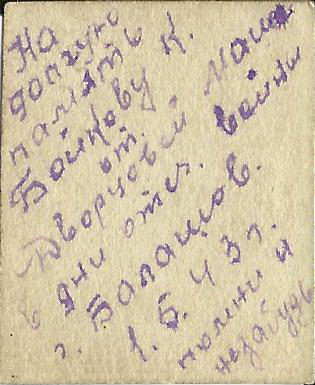 На
долгую
память
Бойкову К.
от.
Дворцовой Маши
в дни отеч. войны
г. Балашов.
1. 5. 43 г.
помни и
незабудь